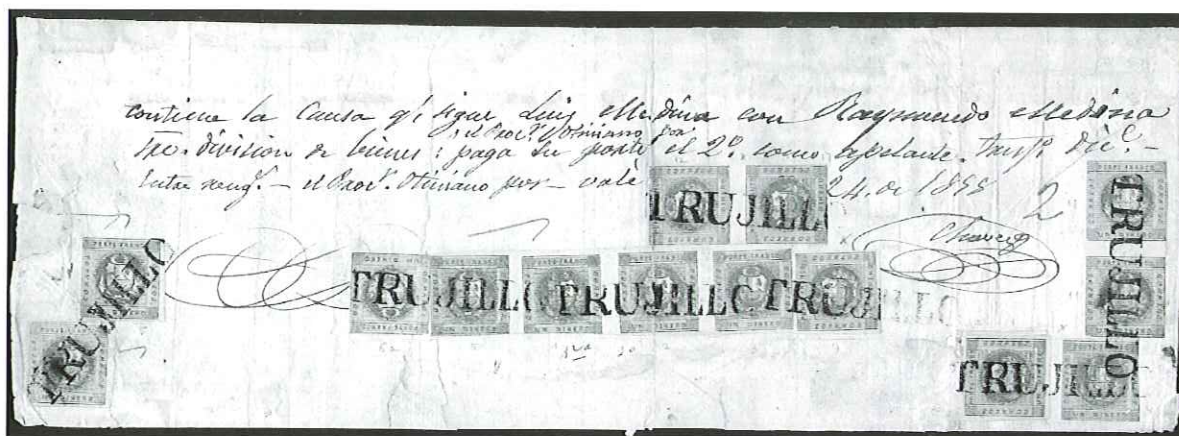 contiene la Causa qᵉ sigue Luis Medina con Raymundo Medina
el Procʳ. Otiniano por
sre. division de bienes: paga su porte el 2º. como apelante. Trujº. Dicᵉ.
Entre rengˢ. — el Procʳ. Otiniano por — vale 24. de 1858
2
TRUJILLO
TRUJILLO
TRUJILLO
TRUJILLO TRUJILLO TRUJILLO
TRUJILLO
PORTE FRANCO
CORREOS
UN DINERO